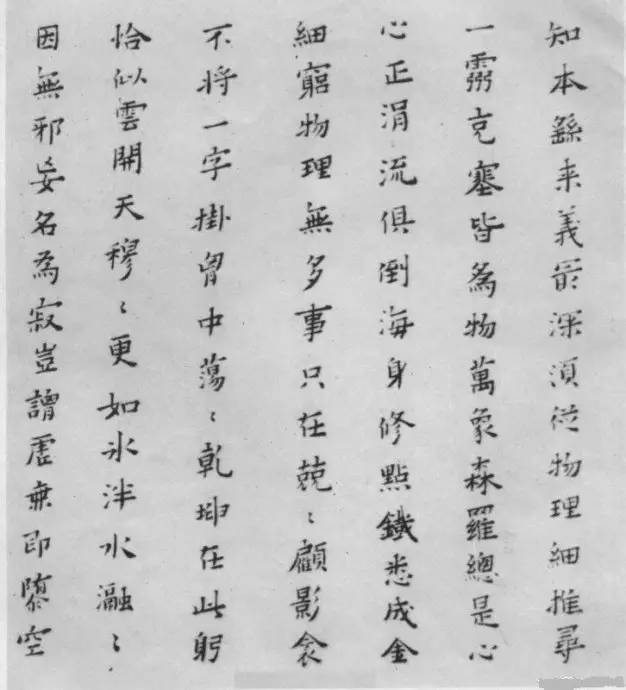 知本繇来義最深須從物理細推尋
一靈充塞皆為物萬象森羅總是心
心正涓流俱倒海身修點鐵悉成金
細窮物理無多事只在兢〻顧影衾
不将一字掛胷中蕩〻乾坤在此躬
恰似雲開天穆〻更如氷泮水瀜〻
因無邪妄名為寂豈謂虗無即墮空